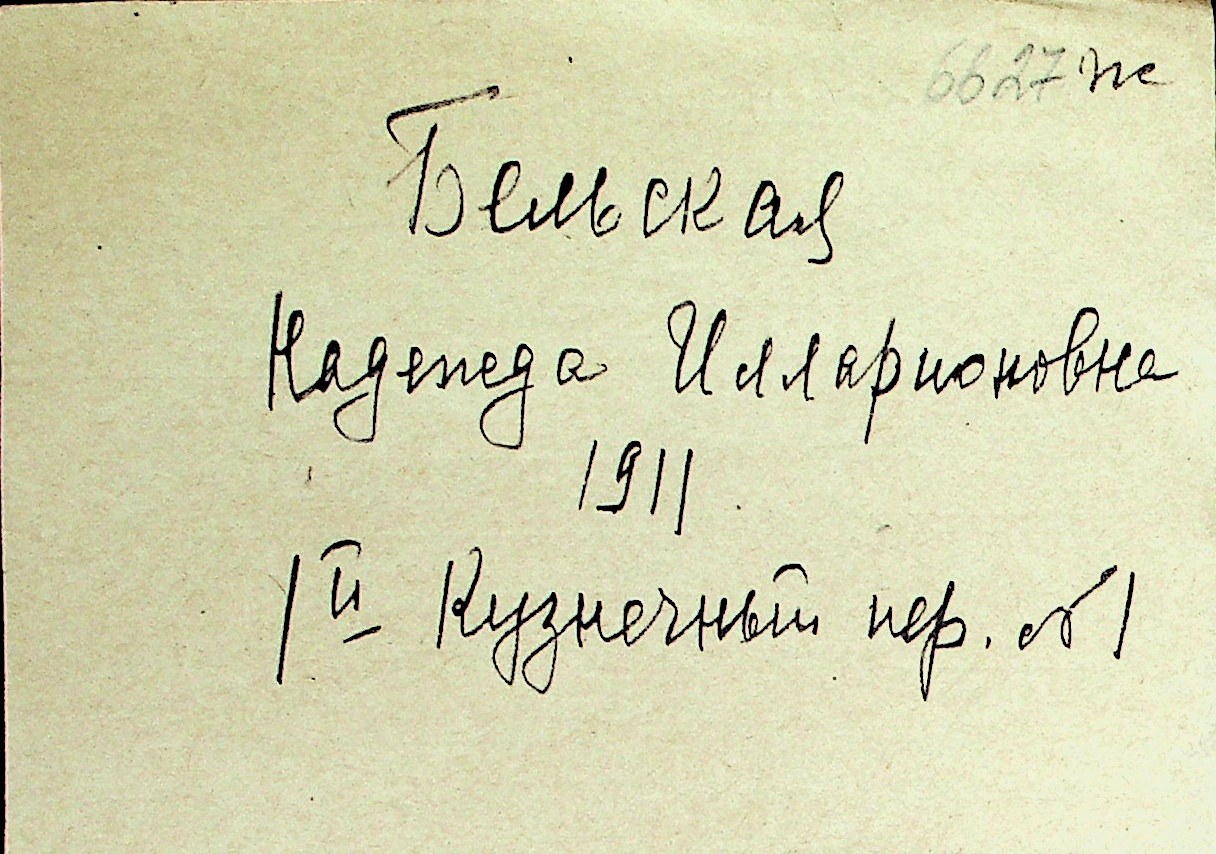 6627 ж
Бельская
Надежда Илларионовна
1911
1й Кузнечный пер.